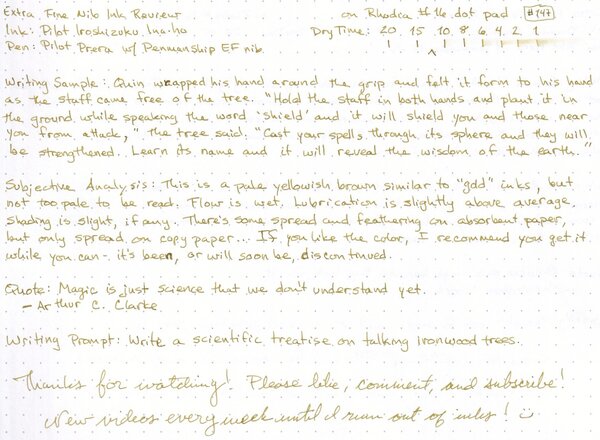 Extra Fine Nib Ink Review on Rhodia #16 dot pad #147
Ink: Pilot Iroshizuku Ina-ho Dry Time: 20 15 10 8 6 4 2 1
Pen: Pilot Prera w/ Penmanship EF nib
Writing Sample: Quin wrapped his hand around the grip and felt it form to his hand
as the staff came free of the tree. "Hold the staff in both hands and plant it in
the ground while speaking the word 'shield' and it will shield you and those near
you from attack," the tree said. "Cast your spells through its sphere and they will
be strengthened. Learn its name and it will reveal the wisdom of the earth."
Subjective Analysis: This is a pale yellowish brown similar to "gold" inks, but
not too pale to be read. Flow is wet. Lubrication is slightly above average.
Shading is slight, if any. There's some spread and feathering on absorbent paper,
but only spread on copy paper... If you like the color, I recommend you get it
while you can - it's been, or will soon be, discontinued.
Quote: Magic is just science that we don't understand yet.
- Arthur C. Clarke
Writing Prompt: Write a scientific treatise on talking Ironwood trees.
Thanks for watching! Please like, comment, and subscribe!
New videos every week until I run out of inks! :)